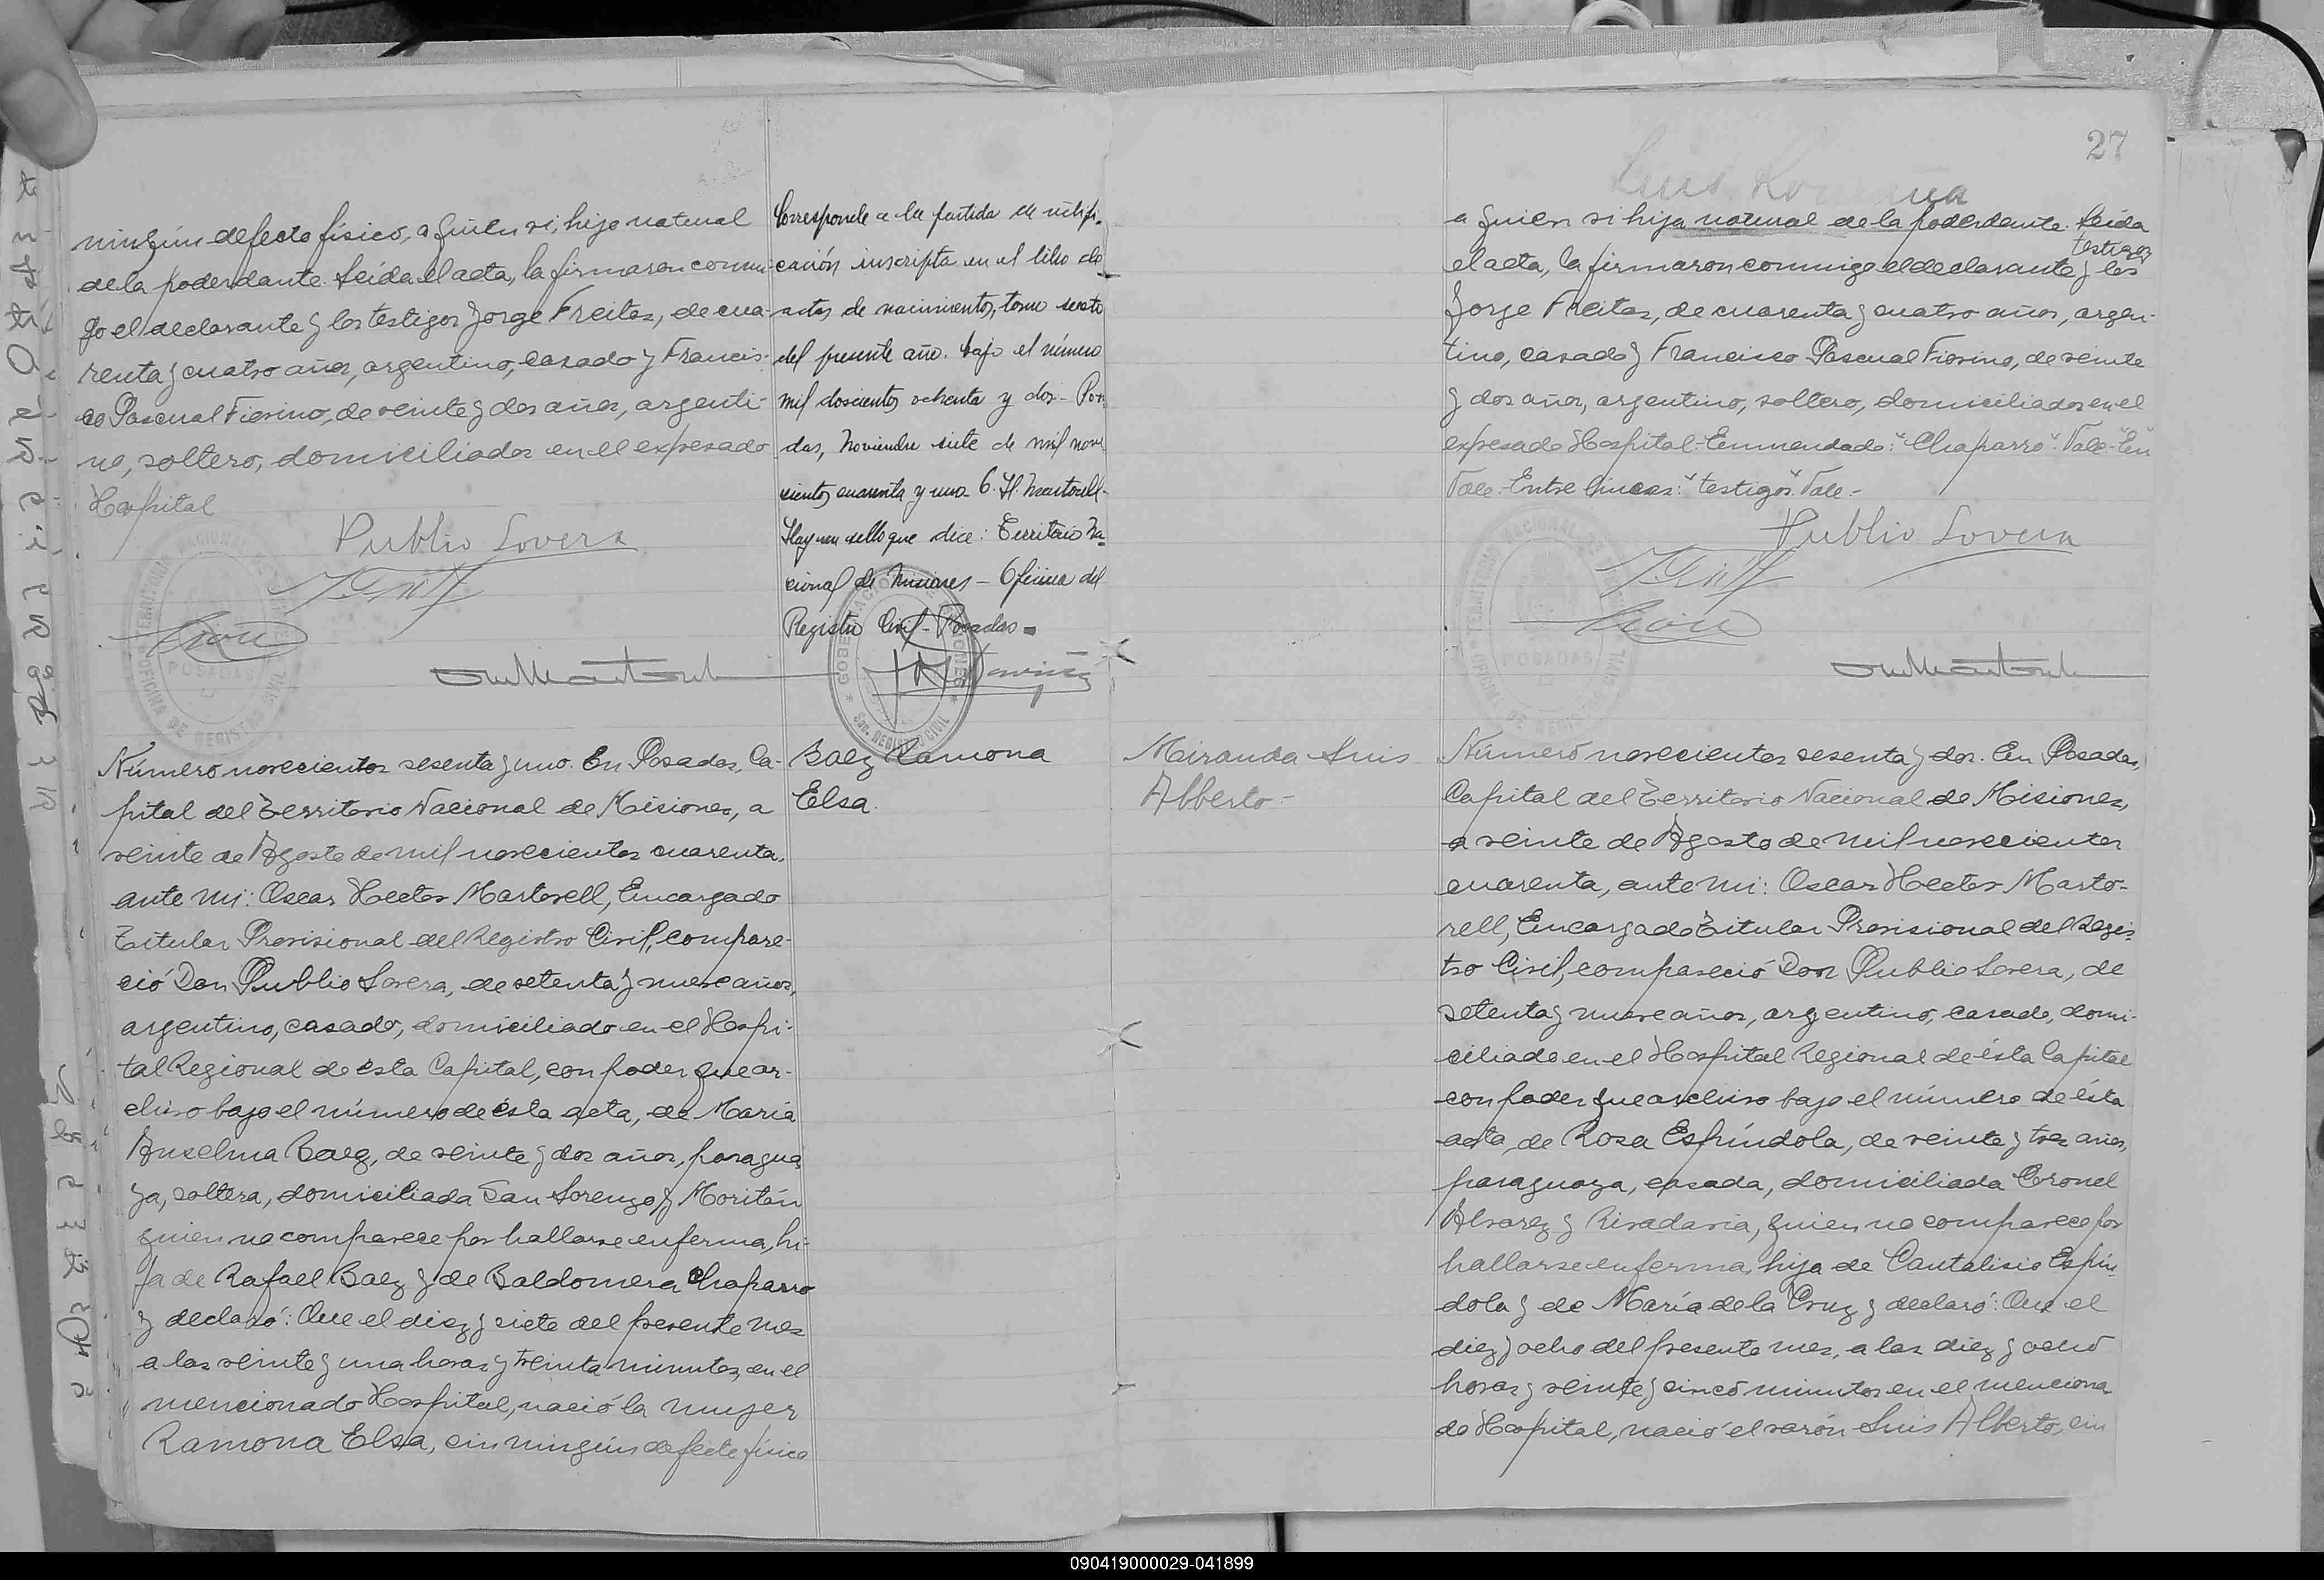 ningún defecto físico, a quien vi, hijo natural
de la poderdante. Leída el acta, la firmaron conmi-
go el declarante y los testigos Jorge Freitas, de cua-
renta y cuatro años, argentino, casado y Francis-
co Pascual Fiorino, de veinte y dos años, argenti-
no, soltero, domiciliados en el expresado
Hospital
Publio Lovera
POSADAS
OFICINA DE REGISTRO CIVIL
Corresponde a la partida de ratifi-
cación inscripta en el libro de
actas de nacimientos, tomo sexto
del presente año. bajo el número
mil doscientos ochenta y dos - Posa-
das, Noviembre siete de mil nove
cientos cuarenta y uno O. H. Martorell-
Hay un sello que dice: Territorio Na-
cional de Misiones - Oficina del
Registro Civil - Posadas =
Número novecientos sesenta y uno. En Posadas, Ca-
pital del Territorio Nacional de Misiones, a
veinte de Agosto de mil novecientos cuarenta,
ante mi: Oscar Hector Martorell, Encargado
Titular Provisional del Registro Civil, compare-
ció Don Publio Lovera, de setenta y nueve años,
argentino, casado, domiciliado en el Hospi-
tal Regional de ésta Capital, con poder que ar-
chivo bajo el número de ésta acta, de María
Anselma Baez, de veinte y dos años, paragua
ya, soltera, domiciliada San Lorenzo y Moritán
quien no comparece por hallarse enferma, hi-
ja de Rafael Baez y de Baldomera Chaparro
y declaró: Que el diez y siete del presente mes
a las veinte y una horas y treinta minutos, en el
mencionado Hospital, nació la mujer
Ramona Elsa, sin ningún defecto físico
Baez Ramona
Elsa.
27
a quien vi hija natural de la poderdante. Leída
testigos
el acta, la firmaron conmigo el declarante y los
Jorge Freitas, de cuarenta y cuatro años, argen-
tino, casado y Francisco Pascual Fiorino, de veinte
y dos años, argentino, soltero, domiciliados en el
expresado Hospital- Enmendado: "Chaparro". Vale- "En"
Vale- Entre líneas: "testigos" Vale.-
Publio Lovera
POSADAS
Miranda Luis
Alberto-
Número novecientos sesenta y dos. En Posadas,
Capital del Territorio Nacional de Misiones,
a veinte de Agosto de mil novecientos
cuarenta, ante mi: Oscar Hector Marto-
rell, Encargado Titular Provisional del Regis-
tro Civil, compareció Don Publio Lovera, de
setenta y nueve años, argentino, casado, domi-
ciliado en el Hospital Regional de ésta Capital
con poder que archivo bajo el número de ésta
acta, de Rosa Espíndola, de veinte y tres años,
paraguaya, casada, domiciliada Coronel
Alvarez y Rivadavia, quien no comparece por
hallarse enferma, hija de Cantalisio Espín-
dola y de María de la Cruz y declaró: Que el
diez y ocho del presente mes, a las diez y ocho
horas y veinte y cinco minutos en el menciona
do Hospital, nació el varón Luis Alberto, sin
090419000029-041899